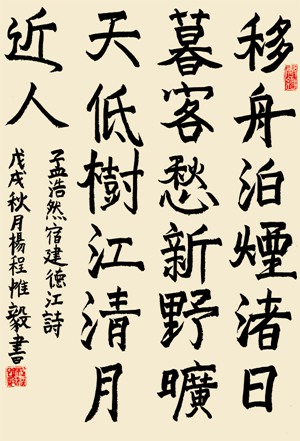 移舟泊煙渚日
暮客愁新野曠
天低樹江清月
近人
孟浩然宿建德江詩
戊戌秋月楊程惟毅書